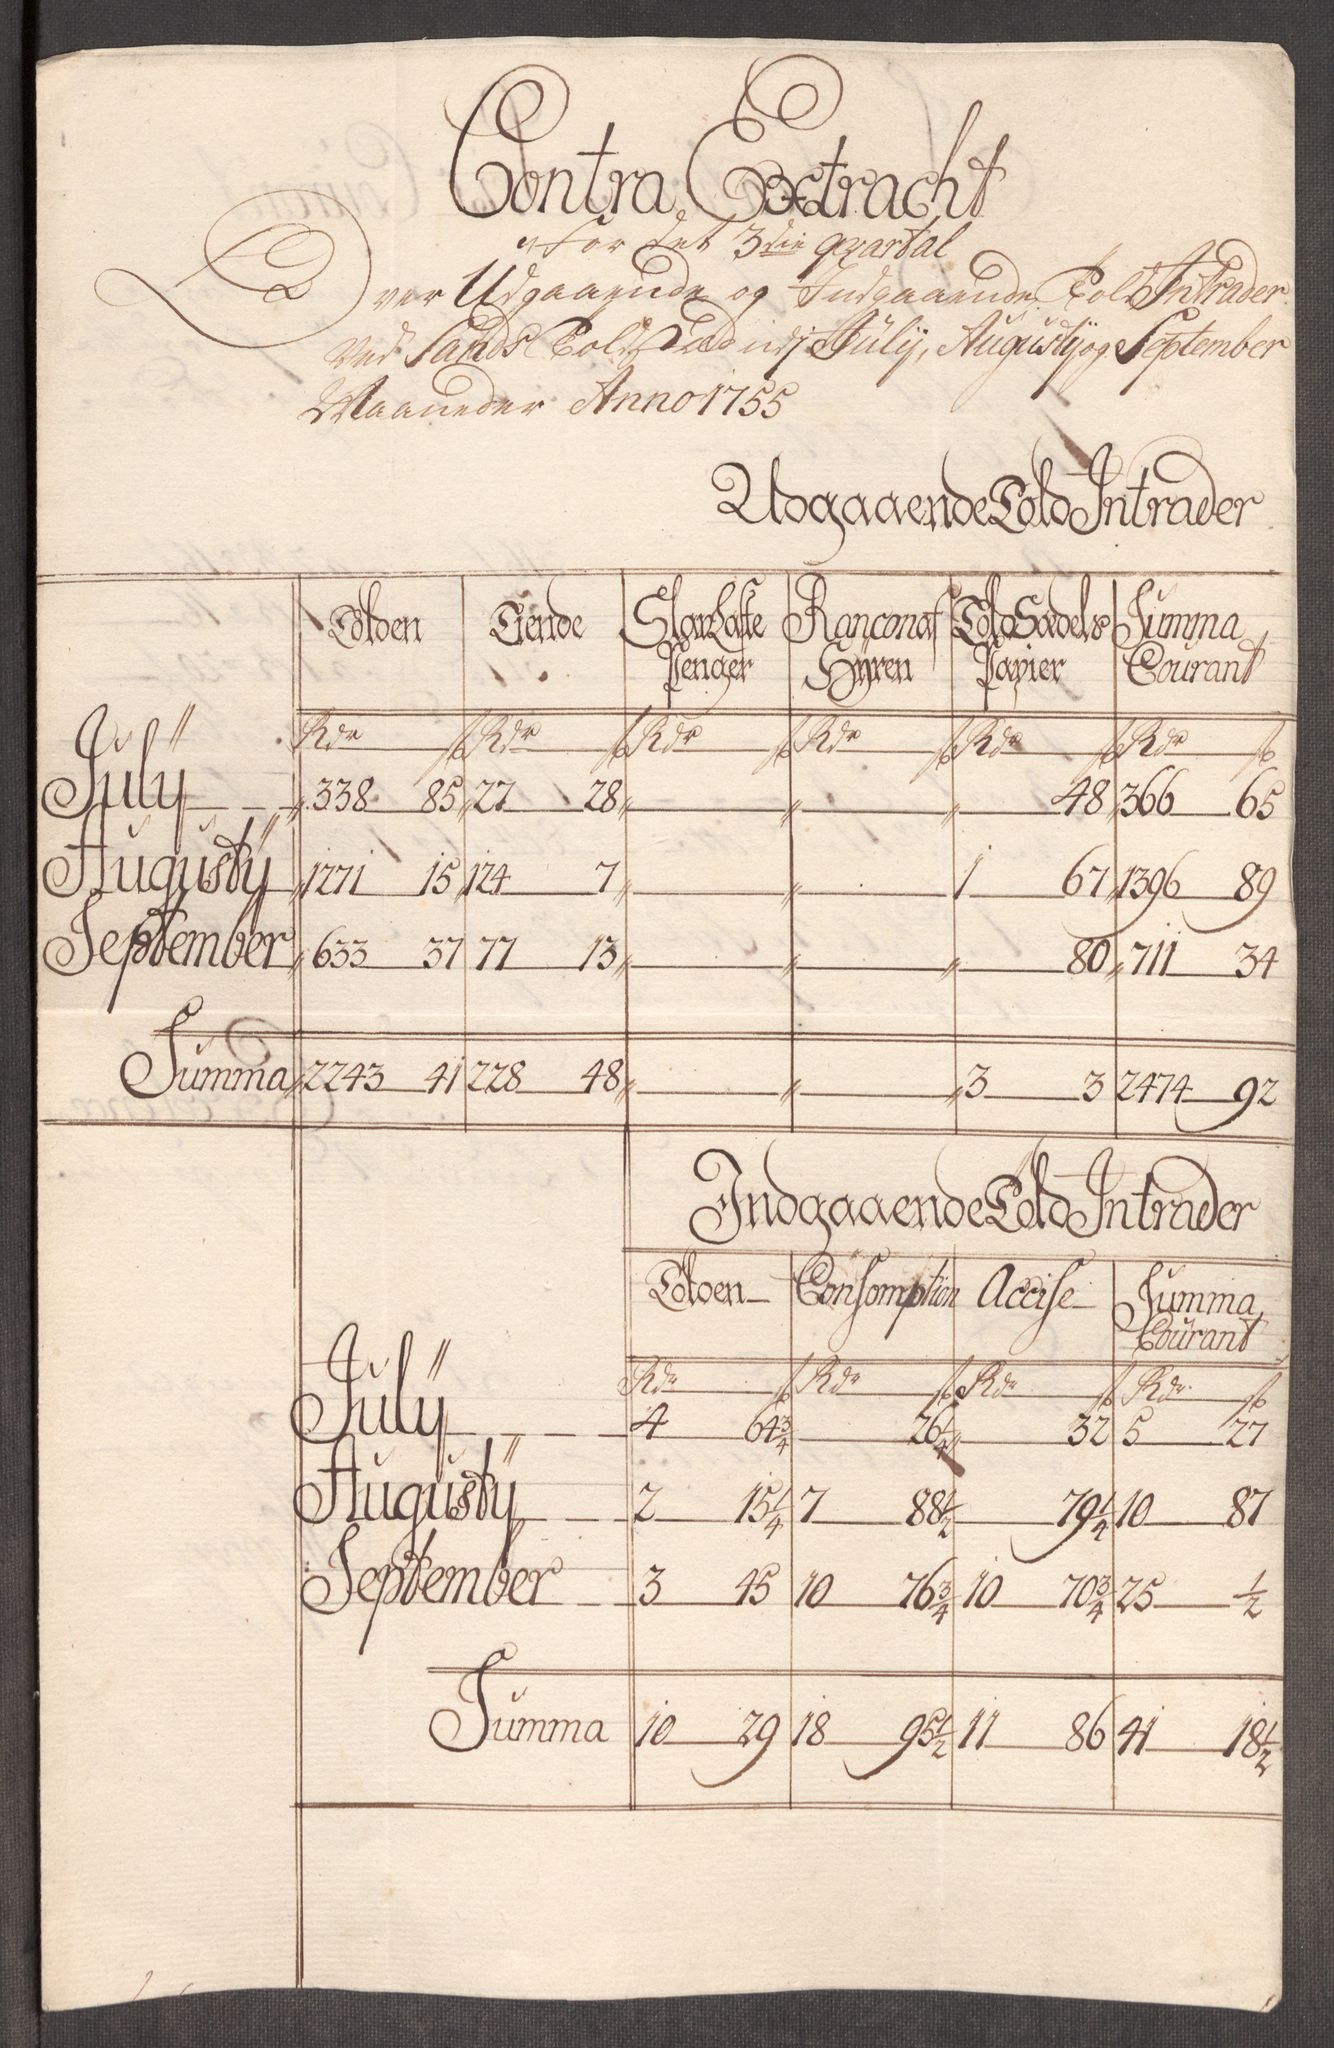 Contra Extracht
for det 3die qvartal
Over Udgaaende og Indgaaende Told Intrader
Ved Sands Told Stæd udj Julij, Augustij og September
Maaneder Anno 1755
Udgaaende Told Intrader
Tolden Tiende Slau Laste Penger Rancon af Hÿren Told Sædels Papier Summa Courant
Rdr ß Rdr ß Rdr ß Rdr ß Rdr ß Rdr ß
Julÿ 338 85 27 28 " " 48 366 65
Augustÿ 1271 15 124 7 " " 1 67 1396 89
September 633 37 77 13 " " 80 711 34
Summa 2243 41 228 48 " " 3 3 2474 92
Indgaaende Told Intrader
Tolden Consomption Accise Summa Courant
Rdr ß Rdr ß Rdr ß Rdr ß
Julÿ 4 64¾ 26¼ 32 5 27
Augustÿ 2 15¼ 7 88½ 79¼ 10 87
September 3 45 10 76¾ 10 70¾ 25 ½
Summa 10 29 18 95½ 11 86 41 18½